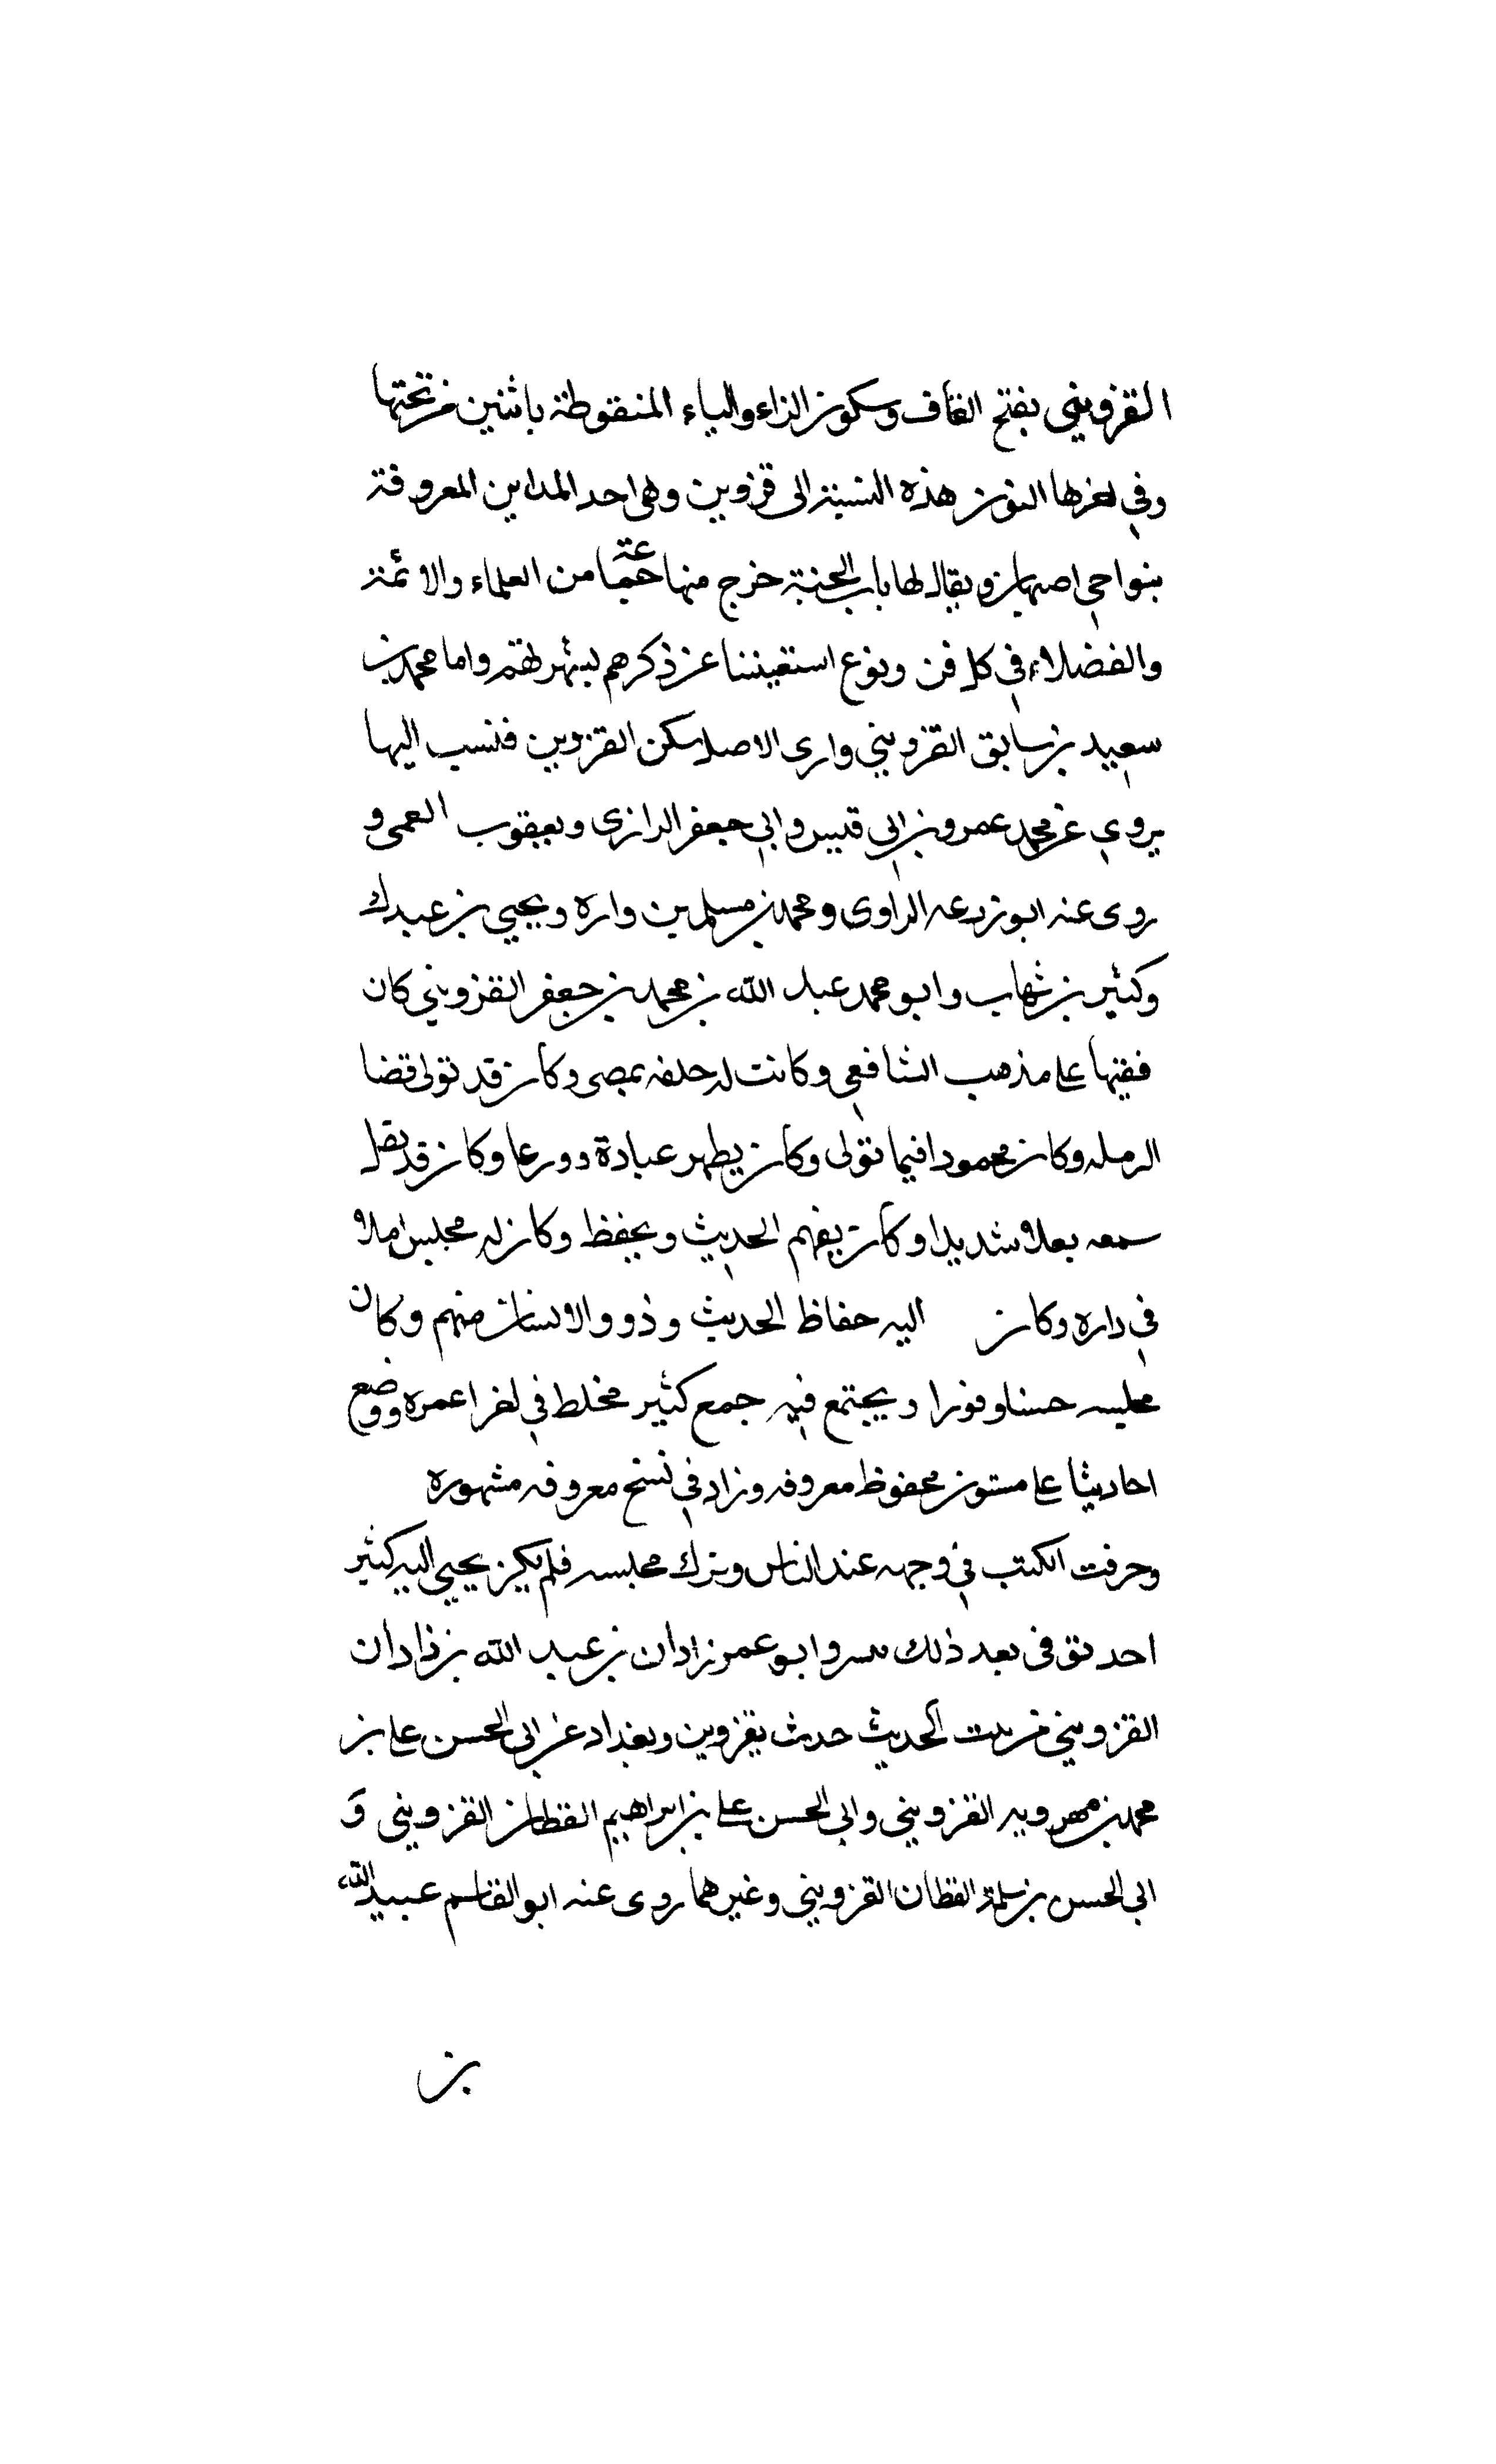 القزويني بفتح القاف وسكون الزاء والياء المنقوطة باثنين من تحتها
وفي اخرها النون هذه النسبة الى قزوين وهي احد المداين المعروفة
بنواحي اصبهان ويقال لها باب الجنة خرج منها جماعة من العلماء والائمة
والفضلاء في كل فن ونوع استغيننا عن ذكرهم لشهرتهم واما محمد بن
سعيد بن سابق القزويني وارى الاصل سكن القزوين فنسب اليها
يروي عن محمد عمرو بن ابي قيس وابي جعفر الرازى ويعقوب العمى و
روى عنه ابو زرعه الراوى ومحمد بن مسلم بن واره ويحيي بن عبدك
وكثير بن شهاب وابو محمد عبد الله بن محمد بن جعفر القزويني كان
فقيها على مذهب الشافعي وكانت له حلفه بمصر وكان قد تولى قضا
الرمله وكان محمودا فيما تولى وكان يطهر عبادة وورعا وكان قد يقل
سمعه بعلا شديدا وكان يفهم الحديث ويحفظ وكان له مجلس املا
في داره وكان اليه حفاظ الحديث وذوو الاسنان منهم وكان
مجلسه حسنا وفورا ويجتمع فيه جمع كثير مخلط في اخر اعمره ووضع
احاديثا على متون محفوظ معروفه وزاد في نسخ معروفه مشهوره
وحرفت الكتب في وجهه عند الناس وترك مجلسه فلم يكن يحيي اليه كثير
احد توفى بعد ذلك وابو عمر زادان بن عبد الله بن زادان
القزويني من بيت الحديث حدث بقزوين وبغداد عن ابي الحسن على بن
محمد بن مهرويه القزويني وابي الحسن على بن ابراهيم القطان القزويني و
ابي الحسن بن سلمة القطان القزويني وغيرهما روى عنه ابو القاسم عبيد الله
بن